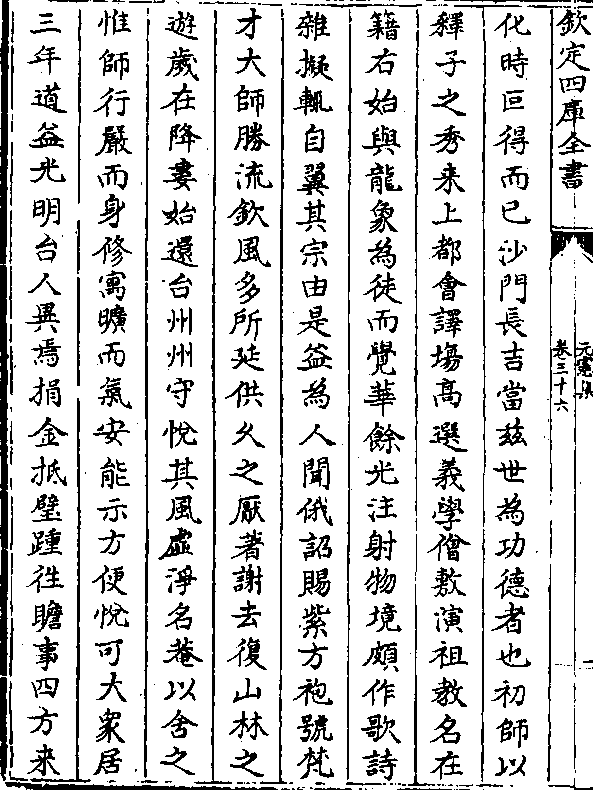 欽定四庫全書
元憲集
卷三十六
化時叵得而已沙門長吉當兹世為功德者也初師以
釋子之秀来上都會譯塲髙選義學僧敷演祖教名在
籍右始與龍象為徒而覺華餘光注射物境頗作歌詩
雜擬輒自翼其宗由是益為人聞俄詔賜紫方袍號梵
才大師勝流欽風多所延供乆之厭著謝去復山林之
遊歲在降婁始還台州州守悅其風虛淨名菴以舍之
惟師行嚴而身修寓曠而氣安能示方便悅可大衆居
三年道益光明台人異焉捐金抵璧踵徃瞻事四方来